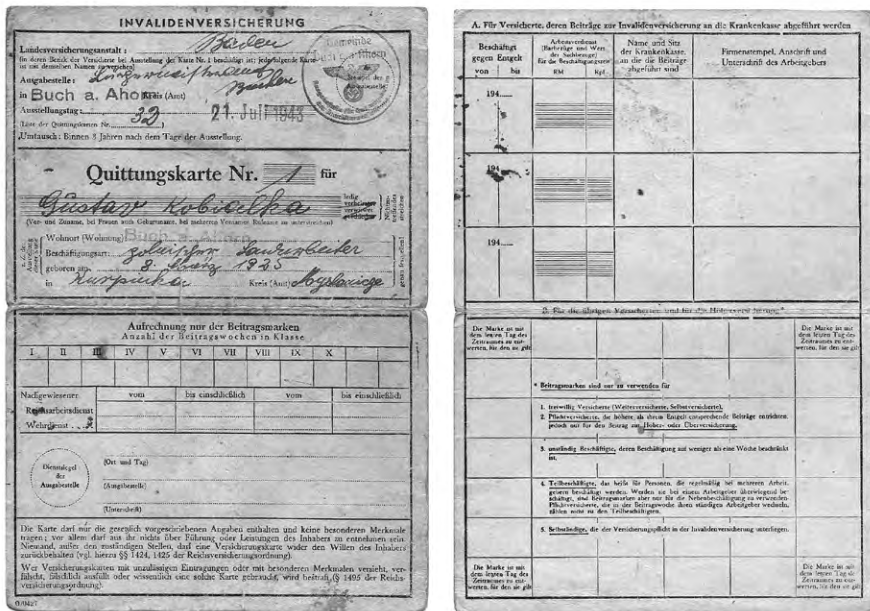 INVALIDENVERSICHERUNG
Landesversicherungsanstalt: Baden
(in deren Bezirk der Versicherte bei Ausstellung der Karte Nr. 1 beschäftigt ist; jede folgende Karte
ist mit demselben Namen zu versehen)
Gemeinde
Ausgabestelle:
in Buch a. Ahorn Kreis (Amt) Buchen
Ausstellungstag: 21. Juli 1943
(Liste der Quittungskarten Nr. 32
Umtausch: Binnen 3 Jahren nach dem Tage der Ausstellung.
Quittungskarte Nr. 1 für
Gustav Kobialka
ledig
verheiratet
verwitwet
geschieden
Nichtzutreffendes
streichen
(Vor- und Zuname, bei Frauen auch Geburtsname, bei mehreren Vornamen Rufname zu unterstreichen)
Wohnort (Wohnung) Buch a. Ahorn
Beschäftigungsart: polnischer Landarbeiter
geboren am 8. März 1925
in Kreis (Amt)
Aufrechnung nur der Beitragsmarken
Anzahl der Beitragswochen in Klasse
I II III IV V VI VII VIII IX X
Nachgewiesener vom bis einschließlich vom bis einschließlich
Reichsarbeitsdienst
Wehrdienst
Dienstsiegel
der
Ausgabestelle
(Ort und Tag)
(Ausgabestelle)
(Unterschrift)
Die Karte darf nur die gesetzlich vorgeschriebenen Angaben enthalten und keine besonderen Merkmale
tragen; vor allem darf aus ihr nichts über Führung oder Leistungen des Inhabers zu entnehmen sein.
Niemand, außer den zuständigen Stellen, darf eine Versicherungskarte wider den Willen des Inhabers
zurückbehalten (vgl. hierzu §§ 1424, 1425 der Reichsversicherungsordnung).
Wer Versicherungskarten mit unzulässigen Eintragungen oder mit besonderen Merkmalen versieht, ver-
fälscht, fälschlich ausfüllt oder wissentlich eine solche Karte gebraucht, wird bestraft (§ 1495 der Reichs-
versicherungsordnung).
A. Für Versicherte, deren Beiträge zur Invalidenversicherung an die Krankenkasse abgeführt werden
Beschäftigt
gegen Entgelt
von bis
Arbeitsverdienst
(Barbezüge und Wert
der Sachbezüge)
für die Beschäftigungszeit
RM Rpf
Name und Sitz
der Krankenkasse,
an die die Beiträge
abgeführt sind
Firmenstempel, Anschrift und
Unterschrift des Arbeitgebers
194
194
194
B. Für die übrigen Versicherten und für die Höherversicherung.*
Die Marke ist mit
dem letzten Tag des
Zeitraumes zu ent-
werten, für den sie gilt
Die Marke ist mit
dem letzten Tag des
Zeitraumes zu ent-
werten, für den sie gilt
* Beitragsmarken sind nur zu verwenden für
1. freiwillig Versicherte (Weiterversicherte, Selbstversicherte),
2. Pflichtversicherte, die höhere, als ihrem Entgelt entsprechende Beiträge entrichten,
jedoch nur für den Beitrag zur Höher- oder Überversicherung.
3. unständig Beschäftigte, deren Beschäftigung auf weniger als eine Woche beschränkt
ist.
4. Teilbeschäftigte, das heißt für Personen, die regelmäßig bei mehreren Arbeit-
gebern beschäftigt werden. Werden sie bei einem Arbeitgeber überwiegend be-
schäftigt, sind Beitragsmarken aber nur für die Nebenbeschäftigung zu verwenden.
Pflichtversicherte, die in der Beitragswoche ihren ständigen Arbeitgeber wechseln,
zählen nicht zu den Teilbeschäftigten.
5. Selbständige, die der Versicherungspflicht in der Invalidenversicherung unterliegen.
Die Marke ist mit
dem letzten Tag des
Zeitraumes zu ent-
werten, für den sie gilt
Die Marke ist mit
dem letzten Tag des
Zeitraumes zu ent-
werten, für den sie gilt